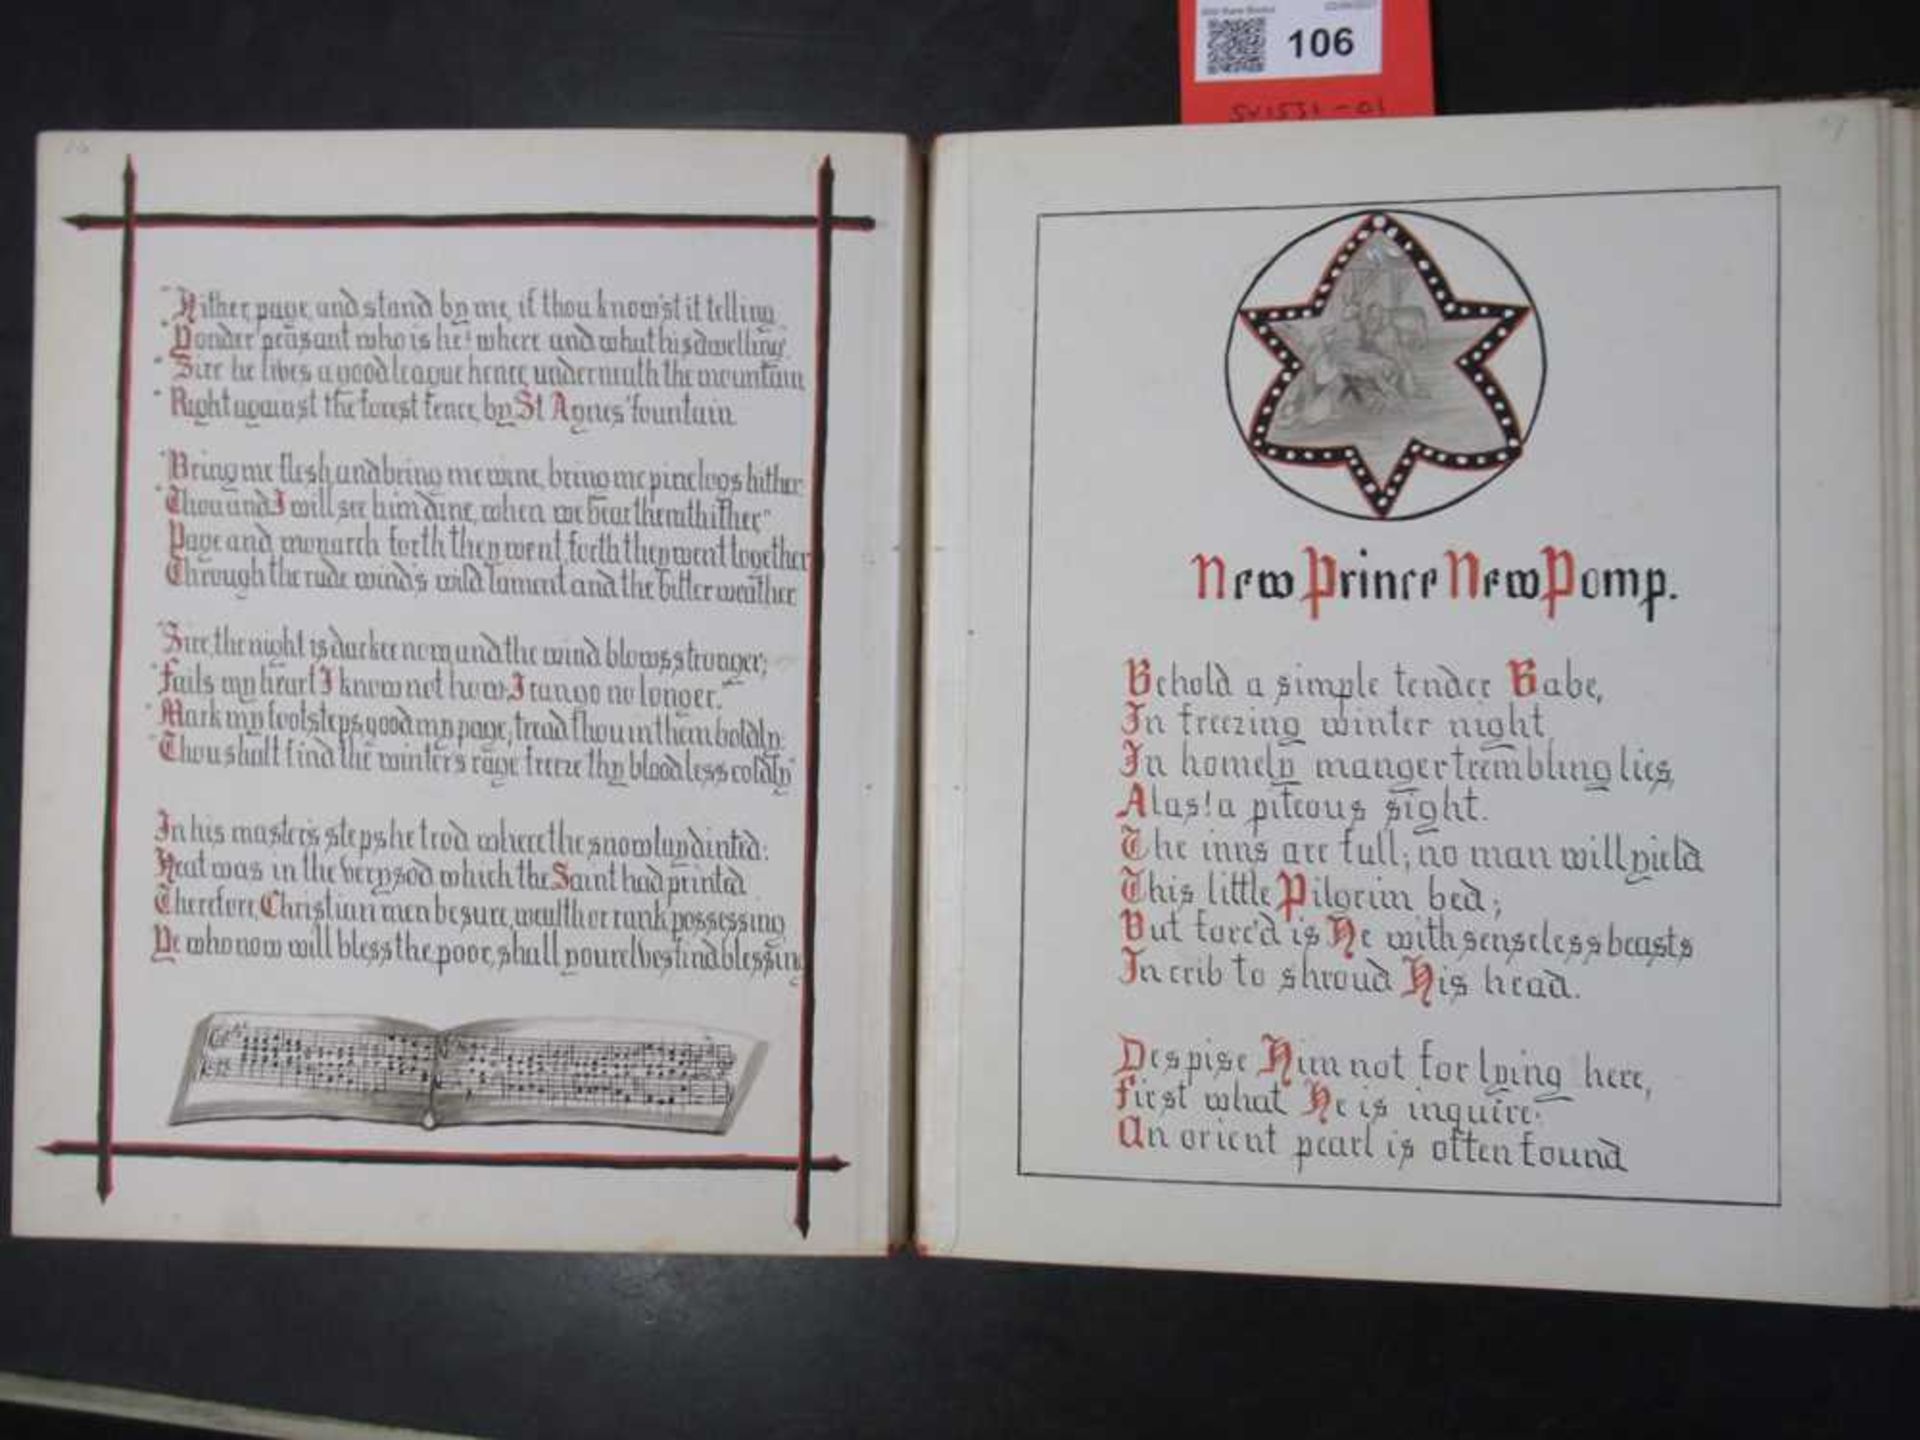 106
SV1531-01
"Hither, page, and stand by me, if thou know'st it telling
"Yonder peasant who is he? where and what his dwelling"
"Sire he lives a good league hence, underneath the mountain
"Right against the forest fence, by St Agnes' fountain.
"Bring me flesh and bring me wine, bring me pine logs hither
"Thou and I will see him dine, when we bear them thither"
Page and monarch forth they went, forth they went together
Through the rude wind's wild lament and the bitter weather
"Sire, the night is darker now and the wind blows stronger;
"Fails my heart I know not how: I can go no longer."
"Mark my footsteps, good my page, tread thou in them boldly:
"Thou shalt find the winter's rage freeze thy blood less coldly"
In his master's steps he trod where the snow lay dinted:
Heat was in the very sod which the Saint had printed
Therefore, Christian men be sure, wealth or rank possessing
Ye who now will bless the poor, shall yourelves find blessing
New Prince New Pomp.
Behold a simple tender Babe,
In freezing winter night
In homely manger trembling lies,
Alas! a piteous sight.
The inns are full; no man will yield
This little Pilgrim bed;
But forc'd is He with senseless beasts
In crib to shroud His head.
Despise Him not for lying here,
First what He is inquire:
An orient pearl is often found